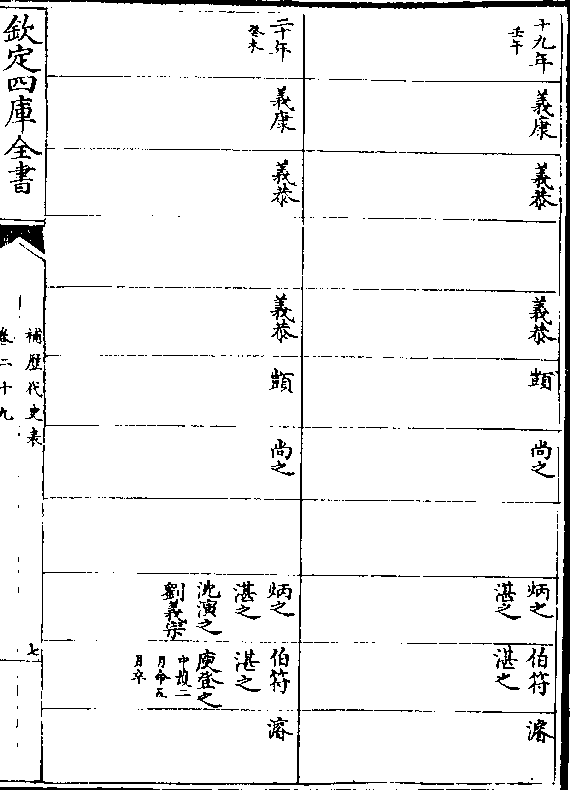 十九年
壬午
義康
義恭
義恭
顗
尚之
炳之
湛之
伯符
湛之
濬
二十年
癸未
義康
義恭
義恭
顗
尚之
炳之
湛之
沈演之
劉義宗
伯符
湛之
庾登之
中護二
月命五
月卒
濬
欽定四庫全書
補歷代史表
卷二十九
七